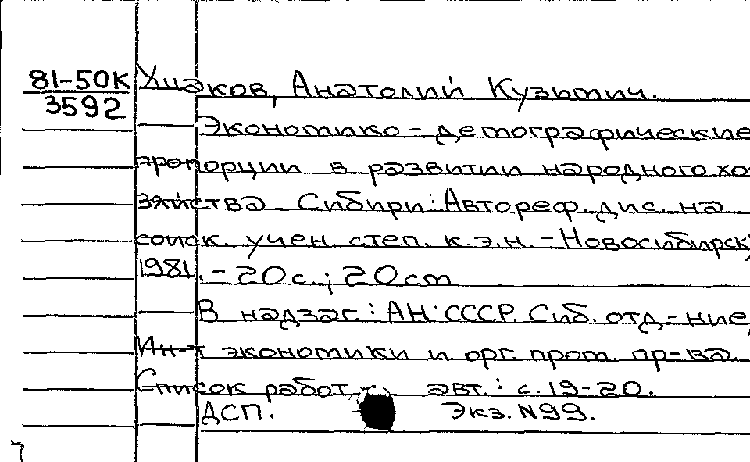 81-50К
3592
Анатолий Кузьмич.
Экономико-демографические
пропорции в развитии народного хо-
зяйства Сибири: Автореф. дис. на
соиск. учен. степ. к.э.н. - Новосибирск,
1981. - 20 с.; 20 cm
В надзаг.: АН СССР. Сиб. отд-ние,
Ин-т экономики и орг. пром. пр-ва.
Список работ авт.: с. 19-20.
ДСП. Экз. N99.